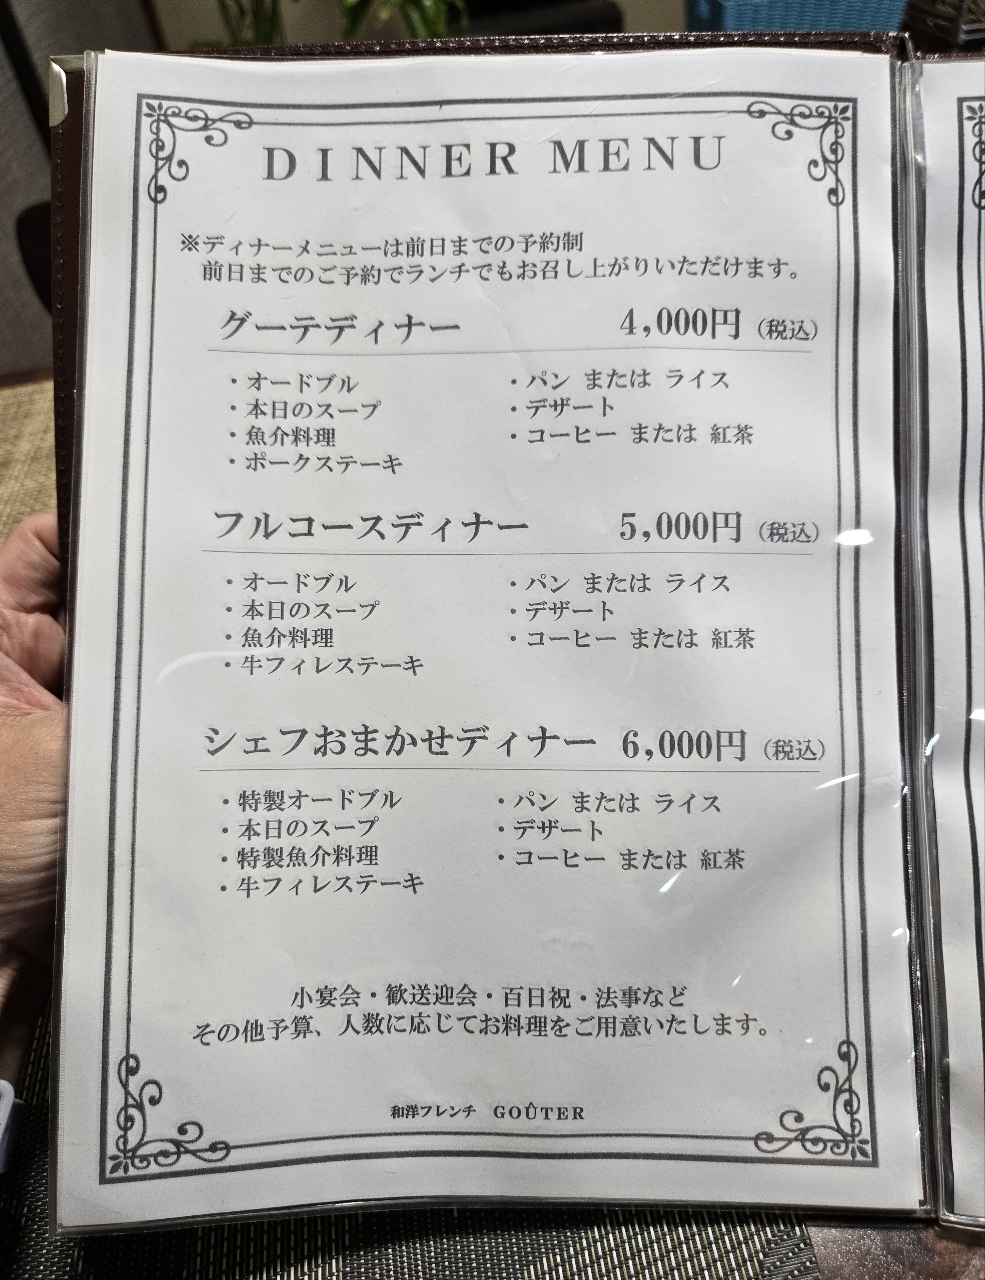 DINNER MENU
※ディナーメニューは前日までの予約制
前日までのご予約でランチでもお召し上がりいただけます。
グーテディナー 4,000円 (税込)
・オードブル
・本日のスープ
・魚介料理
・ポークステーキ
・パン または ライス
・デザート
・コーヒー または 紅茶
フルコースディナー 5,000円 (税込)
・オードブル
・本日のスープ
・魚介料理
・牛フィレステーキ
・パン または ライス
・デザート
・コーヒー または 紅茶
シェフおまかせディナー 6,000円 (税込)
・特製オードブル
・本日のスープ
・特製魚介料理
・牛フィレステーキ
・パン または ライス
・デザート
・コーヒー または 紅茶
小宴会・歓送迎会・百日祝・法事など
その他予算、人数に応じてお料理をご用意いたします。
和洋フレンチ GOÛTER